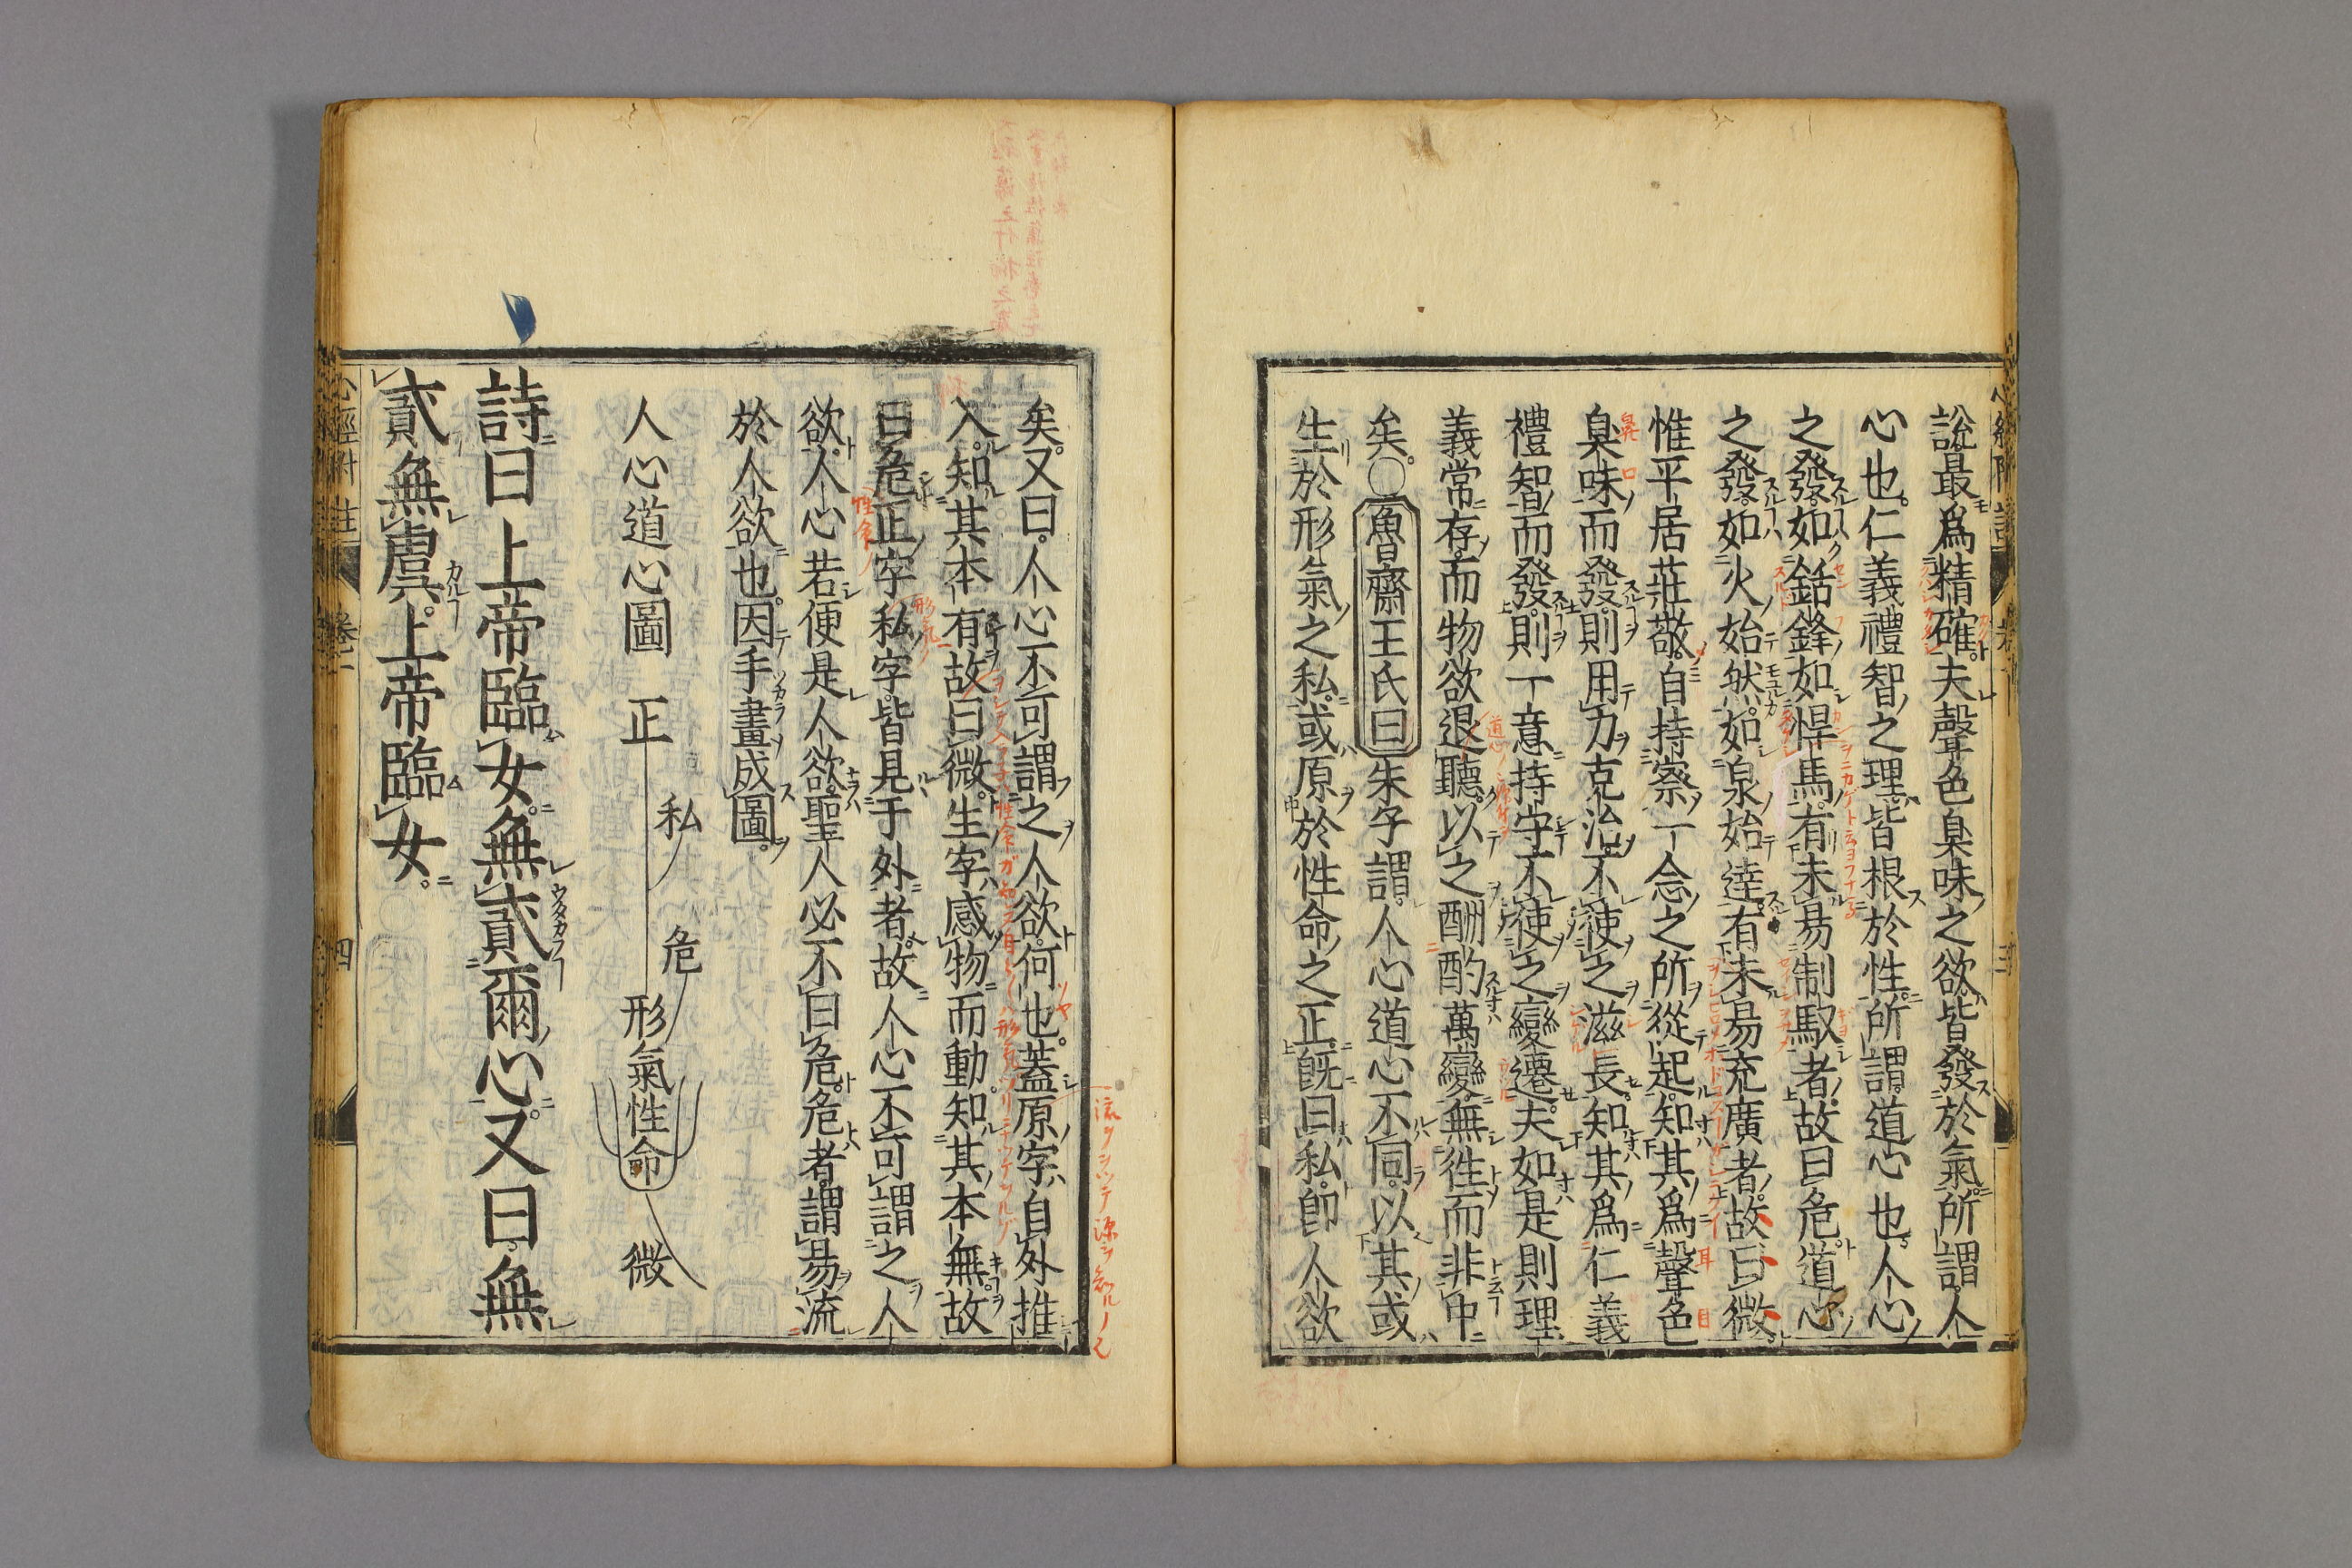 說最爲精確夫聲色臭味之欲皆發於氣所謂人
心也仁義禮智之理皆根於性所謂道心也人心
之發如銛鋒如悍馬有未易制馭者故曰危道心
之發如火始然如泉始達有未易充廣者故曰微
惟平居莊敬自持察一念之所從起知其爲聲色
臭味而發則用力克治不使之滋長知其爲仁義
禮智而發則一意持守不使之變遷夫如是則理
義常存而物欲退聽以之酬酢萬變無徃而非中
矣○魯齋王氏曰朱子謂人心道心不同以其或
生於形氣之私或原於性命之正旣曰私卽人欲
矣又曰人心不可謂之人欲何也蓋原字自外推
入知其本有故曰微生字感物而動知其本無故
曰危正字私字皆見于外者故人心不可謂之人
欲人心若便是人欲聖人必不曰危危者謂易流
於人欲也因手畫成圖
人心道心圖
正
私
危
形氣性命
微
詩曰上帝臨女無貳爾心又曰無
貳無虞上帝臨女
心經附註 卷一 四